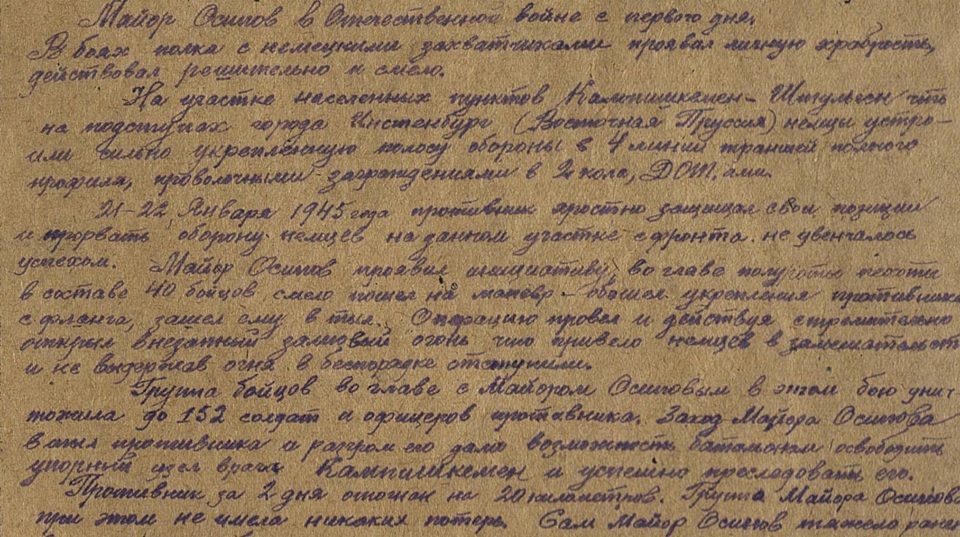 Майор Осипов в Отечественной войне с первого дня.
В боях полка с немецкими захватчиками проявил личную храбрость,
действовал решительно и смело.
На участке населенных пунктов Кампишкемен –
на подступах города Инстенбург (Восточная Пруссия) немцы устро-
или сильно укрепленную полосу обороны в 4 линии траншей полного
профиля, проволочными заграждениями в 2 кола, ДОТ, ами.
21-22 Января 1945 года противник яростно защищал свои позиции
и прорвать оборону немцев на данном участке с фронта не увенчалось
успехом. Майор Осипов проявил инициативу, во главе пехоты
в составе 40 бойцов смело пошел на маневр – обошел укрепления противника
с фланга, зашел ему в тыл. Операцию провел и действуя стремительно
открыл внезапный залповый огонь что привело немцев в замешательст
и не выдержав огня в беспорядке отступили.
Группа бойцов во главе с Майором Осиповым в этом бою уни-
тожила до 152 солдат и офицеров противника. Заход Майора Осипова
в тыл противника и разгром его дало возможность батальонам освободить
упорный узел врага Кампишкемен и успешно преследовать его.
Противник за 2 дня отогнан на 20 километров. Группа Майора Осипова
при этом не имела никаких потерь. Сам Майор Осипов тяжело ранен